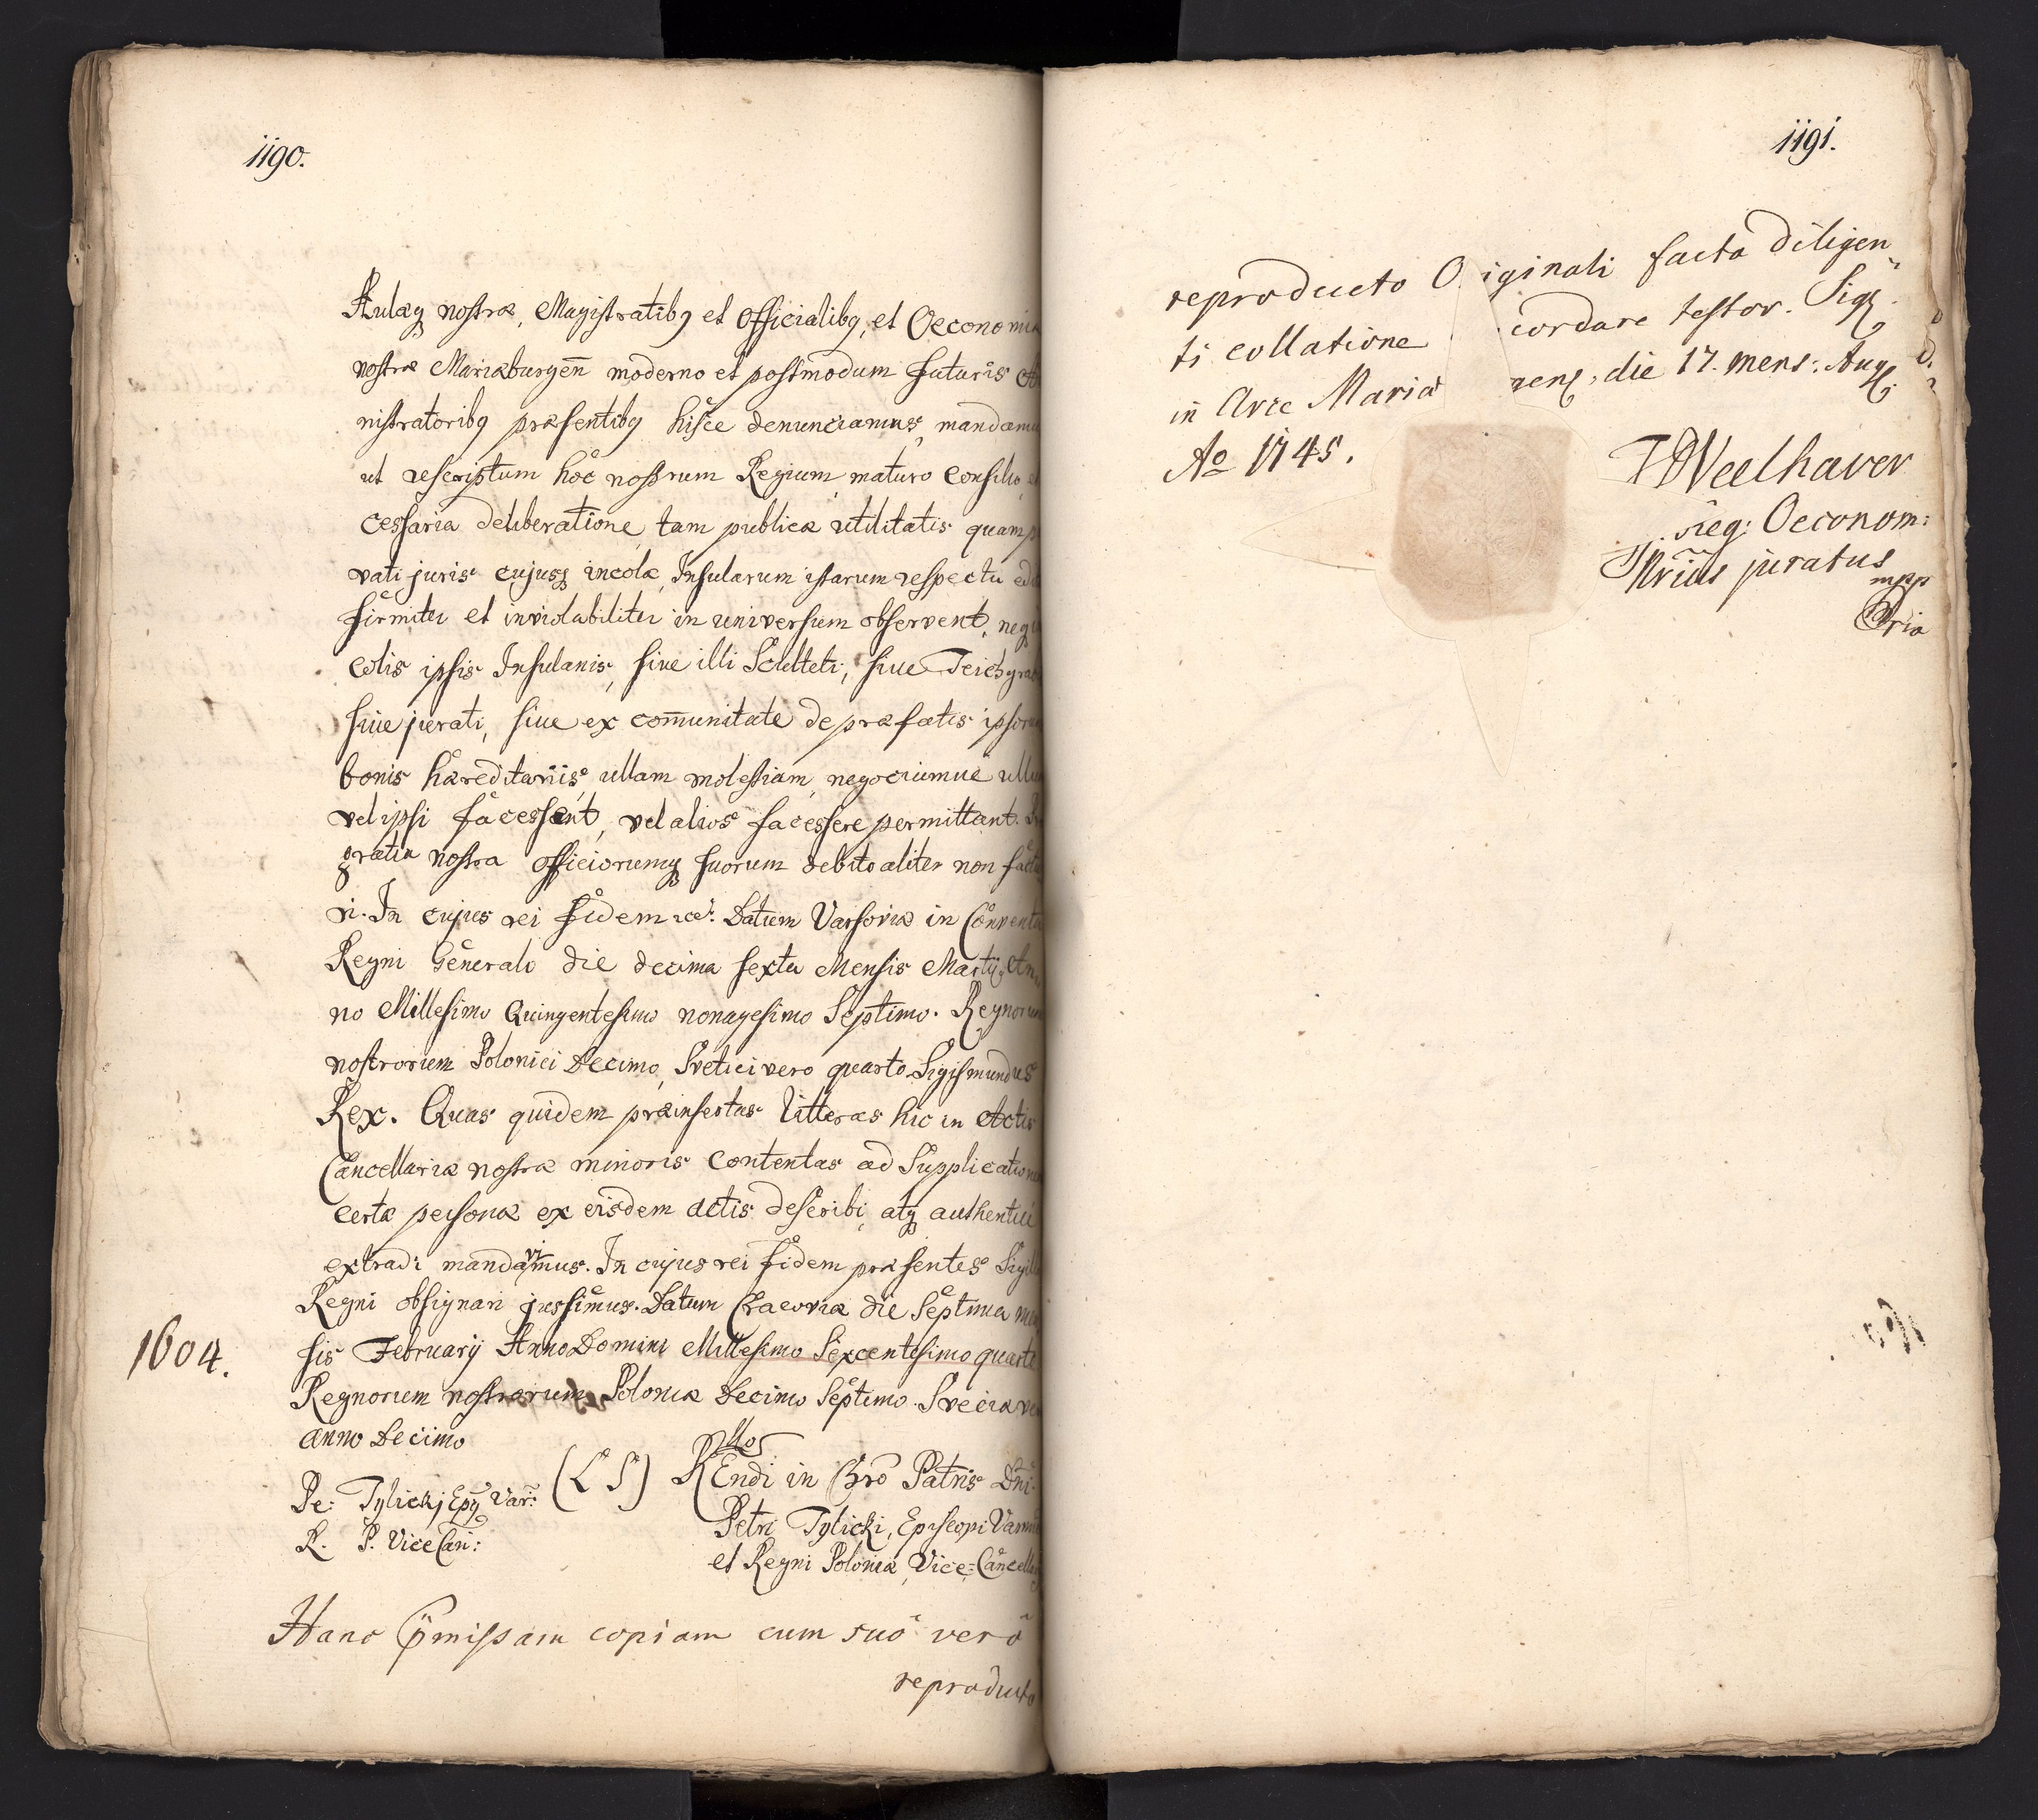 1190.
Aulæq nostræ, Magistratibq et Officialibq, et Oeconomiæ
nostræ Mariæburgen̄ moderno et postmodum futuris
nistratoribq præsentibq hisce denunciamus, mandamu
ut rescriptum hoc nostrum Regium maturo consilio,
cessaria deliberatione, tam publicæ utilitatis quam p
vati juris cujusq incolæ, Insularum istarum respectu
firmiter et inviolabiliter in universum observent, neq
colis ipsis Insulanis, sive illi Sculteti, sive Teichgra
sive jurati, sive ex com̄unitate de præfatis ipsoru
bonis hæreditariis, ullam molestiam, negociumve ullu
vel ipsi facessant, vel alios facessere permittant.
gratia nostra officiorumq suorum debito aliter non factu
ri. In cujus rei fidem etc. Datum Varsoviæ in Conventu
Regni Generalo die decima sexta Mensis Martij, An,
no Millesimo Quingentesimo nonagesimo Septimo. Regnorum
nostrorum Polonici Decimo, Svetici vero quarto Sigismundus
Rex. Quas quidem præinsertas litteras hic in Actis
Cancellariæ nostræ minoris contentas ad Supplicatione
certæ personæ ex eisdem actis describi, atq authentici
extradi mandavimus. In cujus rei fidem præsentes Sigillo
Regni obsignari jussimus. Datum Cracoviæ die Septima men
1604.
sis Februarij Anno Domini Millesimo Sexcentesimo quarto
Regnorum nostrorum Poloniæ Decimo Septimo. Sveciæ ve
anno Decimo
Pe: Tylickj Epq Var:
R. P. Vice Can:
(L S)
Rendi in Chro Patris Dni
Petri Tylicki, Episcopi Varmi
et Regni Poloniæ, Vice=Cancella
Hanc p̄missam copiam cum suo vero
reproducto
1191.
reproducto O iginali facta diligen
ti collatione cordare testor. Sig
in Arce Mariæ gens, die 17. mens: Aug
Ao 1745.
Weelhaver
reg: Oeconom:
Nrius juratus
mpp